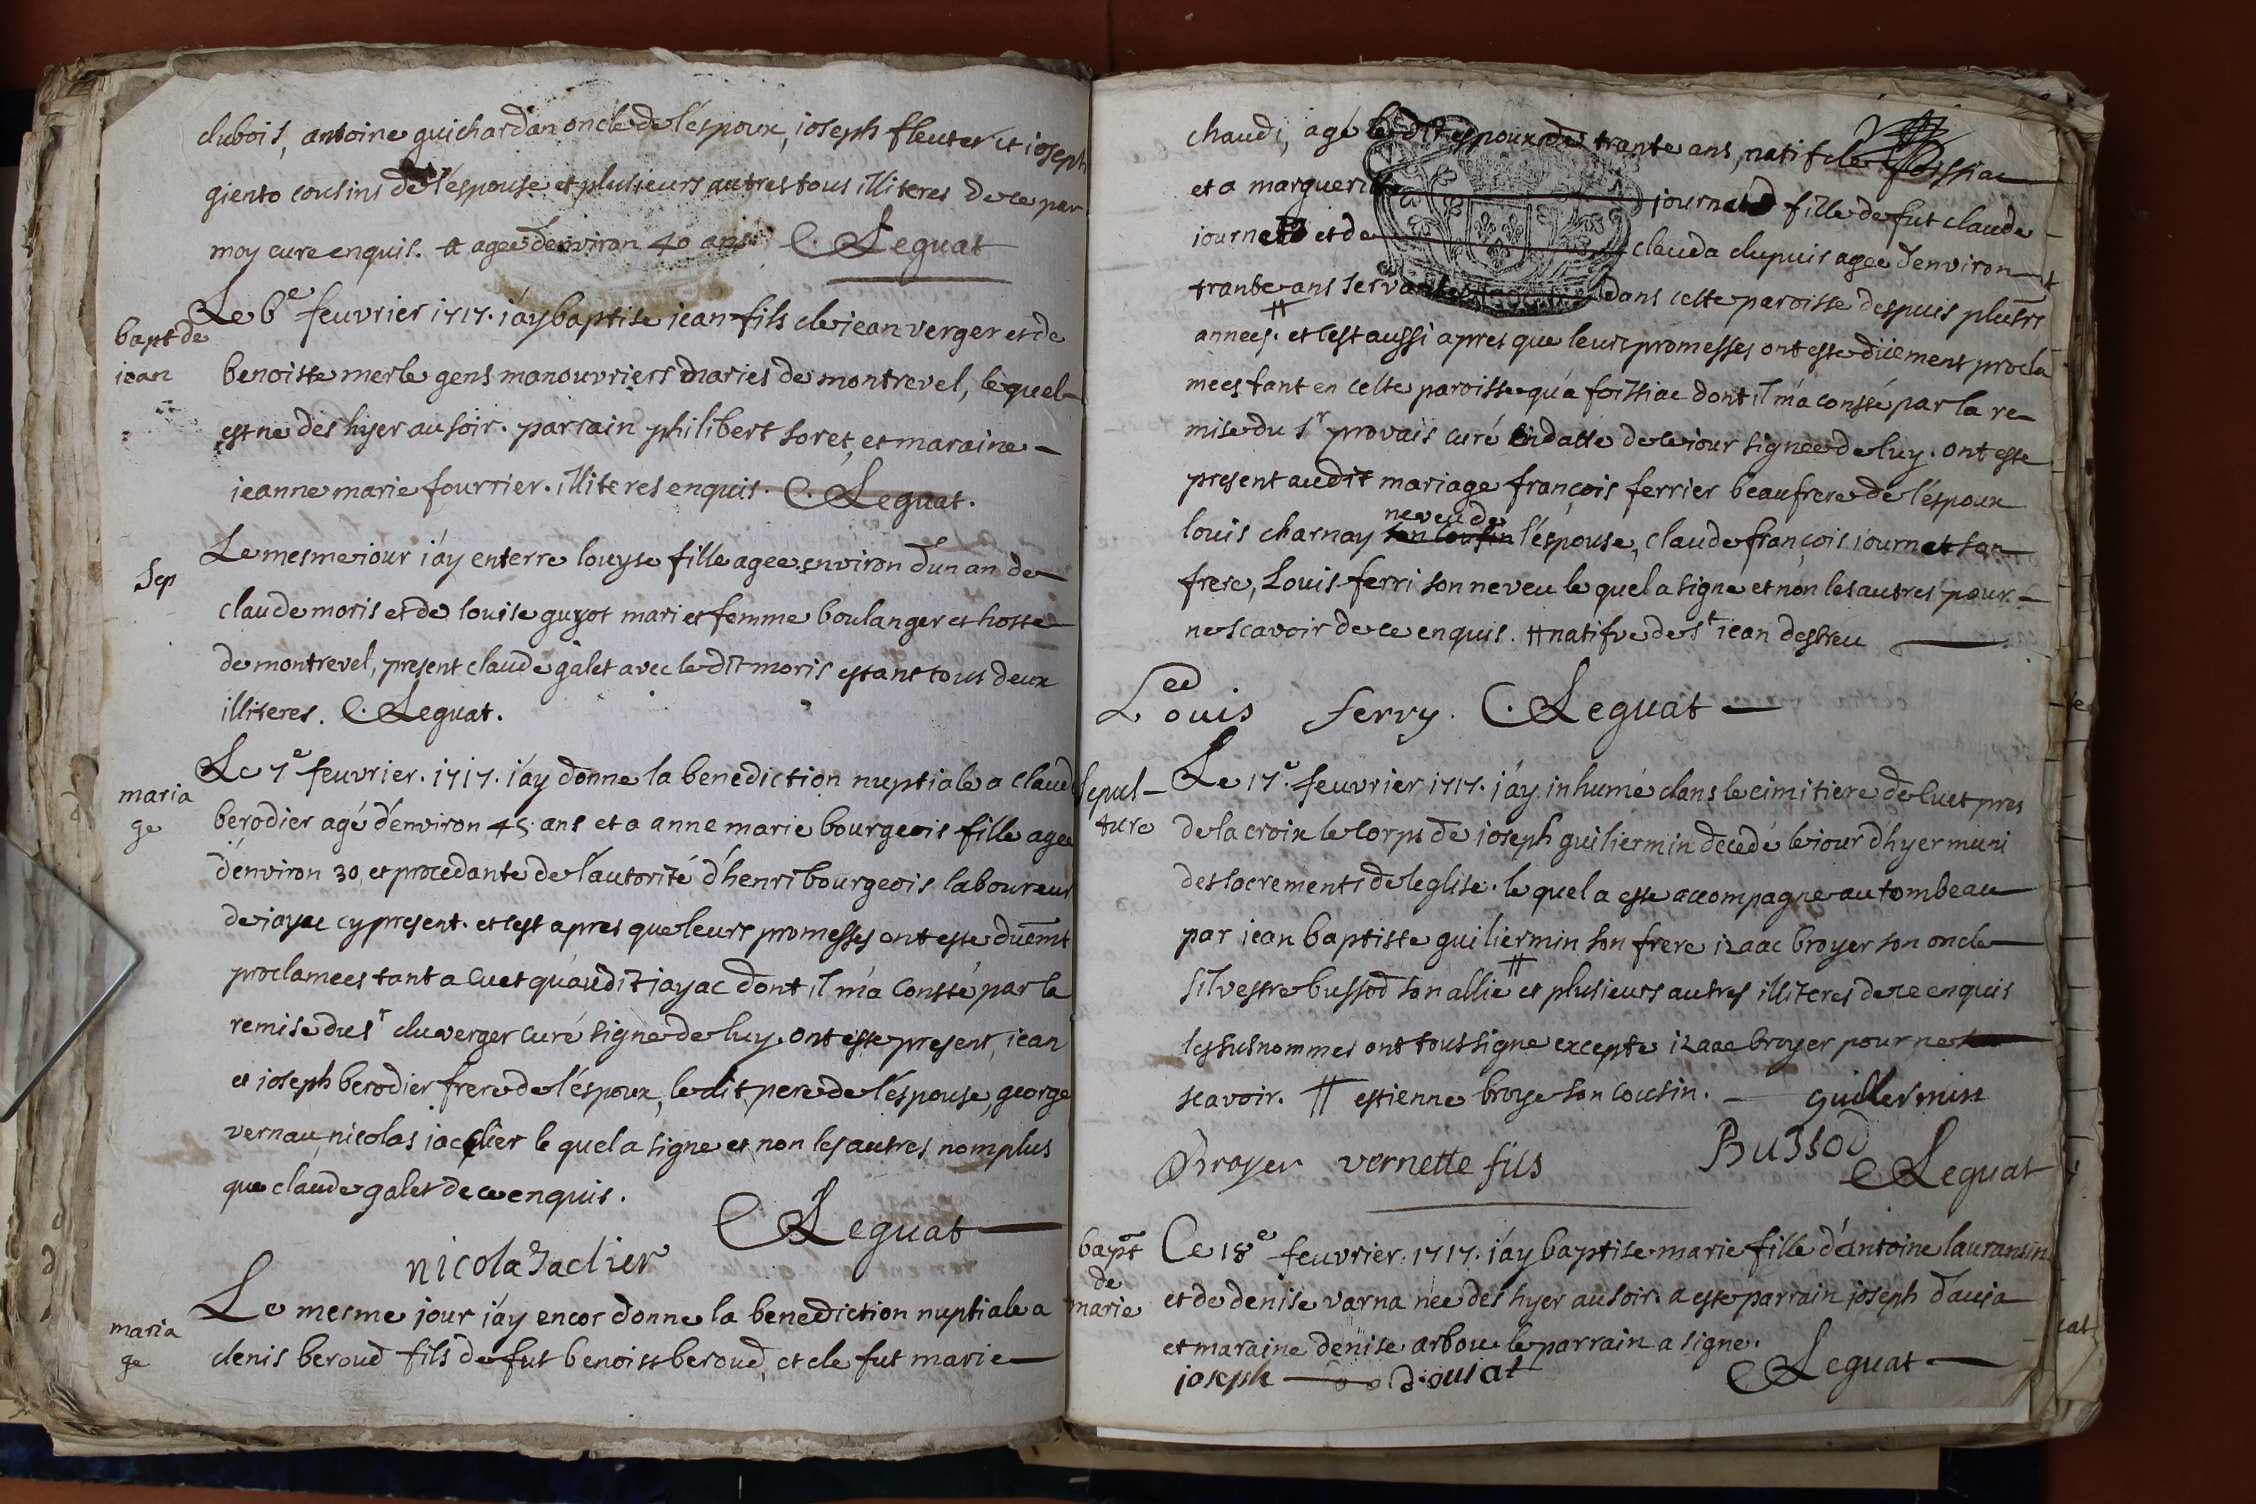 dubois, antoine guichardan oncle de l'espoux, joseph fleutet et joseph
giento cousins de l'espouse et plusieurs autres tous illiteres de ce par
moy cure enquis. # agee d'environ 40 ans C. Leguat
bapt de
jean
Le 6e feuvrier 1717. j'ay baptise jean fils de jean verger et de
benoiste merle gens manouvriers maries de montrevel, lequel
est ne des hyer au soir. parrain philibert soret, et maraine
jeanne marie fourrier. illiteres enquis. C. Leguat.
Sep
Le mesme jour j'ay enterre louyse fille agee environ d'un an de
claude moris et de louise guyot mari et femme boulanger et hoste
de montrevel, present claude galet avec le dit moris estant tous deux
illiteres. C. Leguat.
maria
ge
Le 7e feuvrier. 1717. j'ay donne la benediction nuptiale a claude
berodier agé d'environ 45. ans et a anne marie bourgeois fille agee
d'environ 30 et procedante de l'autorité d'henri bourgeois laboureur
de jayac cy present. et c'est apres que leurs promesses ont este duemt
proclamees tant a Cuet qu'audit jayac dont il m'a consté par la
remise du sr duverger curé signé de luy. ont este present, jean
et joseph berodier frere de l'espoux, le dit pere de l'espouse, george
vernau, nicolas jaclier le quel a signe et non les autres nomplus
que claude galet de ce enquis.
C Leguat
nicola Jaclier
maria
ge
Le mesme jour j'ay encor donne la benediction nuptiale a
denis beroud fils de fut benoist beroud, et de fut marie
chaudi, agé le dit espoux de trante ans, natif de foissiac
et a marguerite journet fille de fut claude
journet et de clauda dupuis agee d'environ
trante ans servante dans cette paroisse despuis plusrs
#
annees. et c'est aussi apres que leurs promesses ont este düement procla
mees tant en cette paroisse qu'a foissiac dont il m'a consté par la re
mise du sr provais curé en datte de ce jour signee de luy. ont este
present audit mariage françois ferrier beaufrere de l'espoux
neveu de
louis charnay son cousin l'espouse, claude françois journet son
frere, Louis ferri son neveu le quel a signe et non les autres pour
ne scavoir de ce enquis. # natifve de st jean destreu
Louis ferry. C. Leguat
Sepul-
ture
Le 17e. feuvrier 1717. j'ay inhumé dans le cimitiere de Cuet pres
de la croix le corps de joseph guiliermin decedé le jour d'hyer muni
des sacrements de l'eglise. le quel a este accompagne au tombeau
par jean baptiste guiliermin son frere izaac broyer son oncle
#
silvestre bussod son allie et plusieurs autres illiteres de ce enquis
les susnommes ont tous signe excepte izaac broyer pour ne
scavoir. # estienne broye son cousin. guillermin
Broyer vernette fils Bussod
C Leguat
bapt
de
marie
Ce 18e feuvrier. 1717. j'ay baptise marie fille d'antoine lauransin
et de denise varna nee des hyer au soir. a este parrain joseph dauja
et maraine denise arbou le parrain a signe.
joseph d'ouiat C Leguat